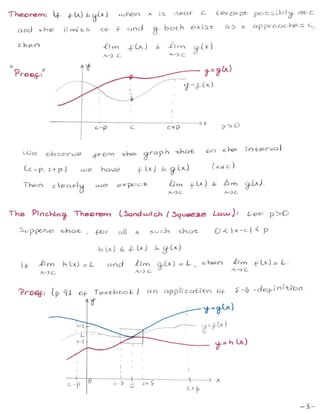 Theorem: If f(x) ≤ g(x) when x is near c (except possibly at c
and the limits of f and g both exist as x approaches c,
then lim f(x) ≤ lim g(x)
x→c x→c
"Proof:"
y
y=g(x)
y=f(x)
x
c-p c c+p p>0
We observe from the graph that on the interval
(c-p, c+p) we have f(x) ≤ g(x) (x≠c)
Then clearly we expect lim f(x) ≤ lim g(x).
x→c x→c
The Pinching Theorem (Sandwich / Squeeze Law): Let p>0
Suppose that, for all x such that 0<|x-c|<p
h(x) ≤ f(x) ≤ g(x)
If lim h(x)=L and lim g(x)=L, then lim f(x)=L.
x→c x→c x→c
Proof: (p 91 of Textbook) an application of ε-δ-definition.
y
y=g(x)
L+ε
y=f(x)
L
L-ε
y=h(x)
x
c-p 0 c-δ c c+δ c+p
-3-